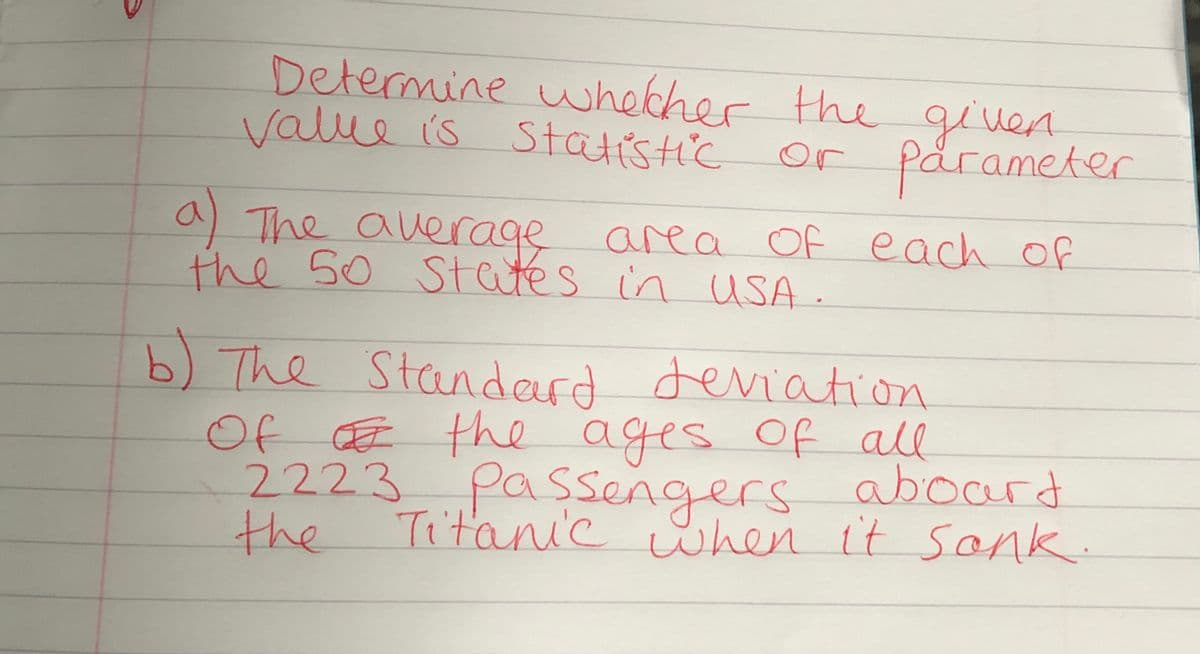 Determine whether the given
value is statistic or parameter
a) The average area of each of
the 50 states in USA.
b) The Standard deviation
Of the ages of all
2223 passengers aboard
the Titanic when it sank.